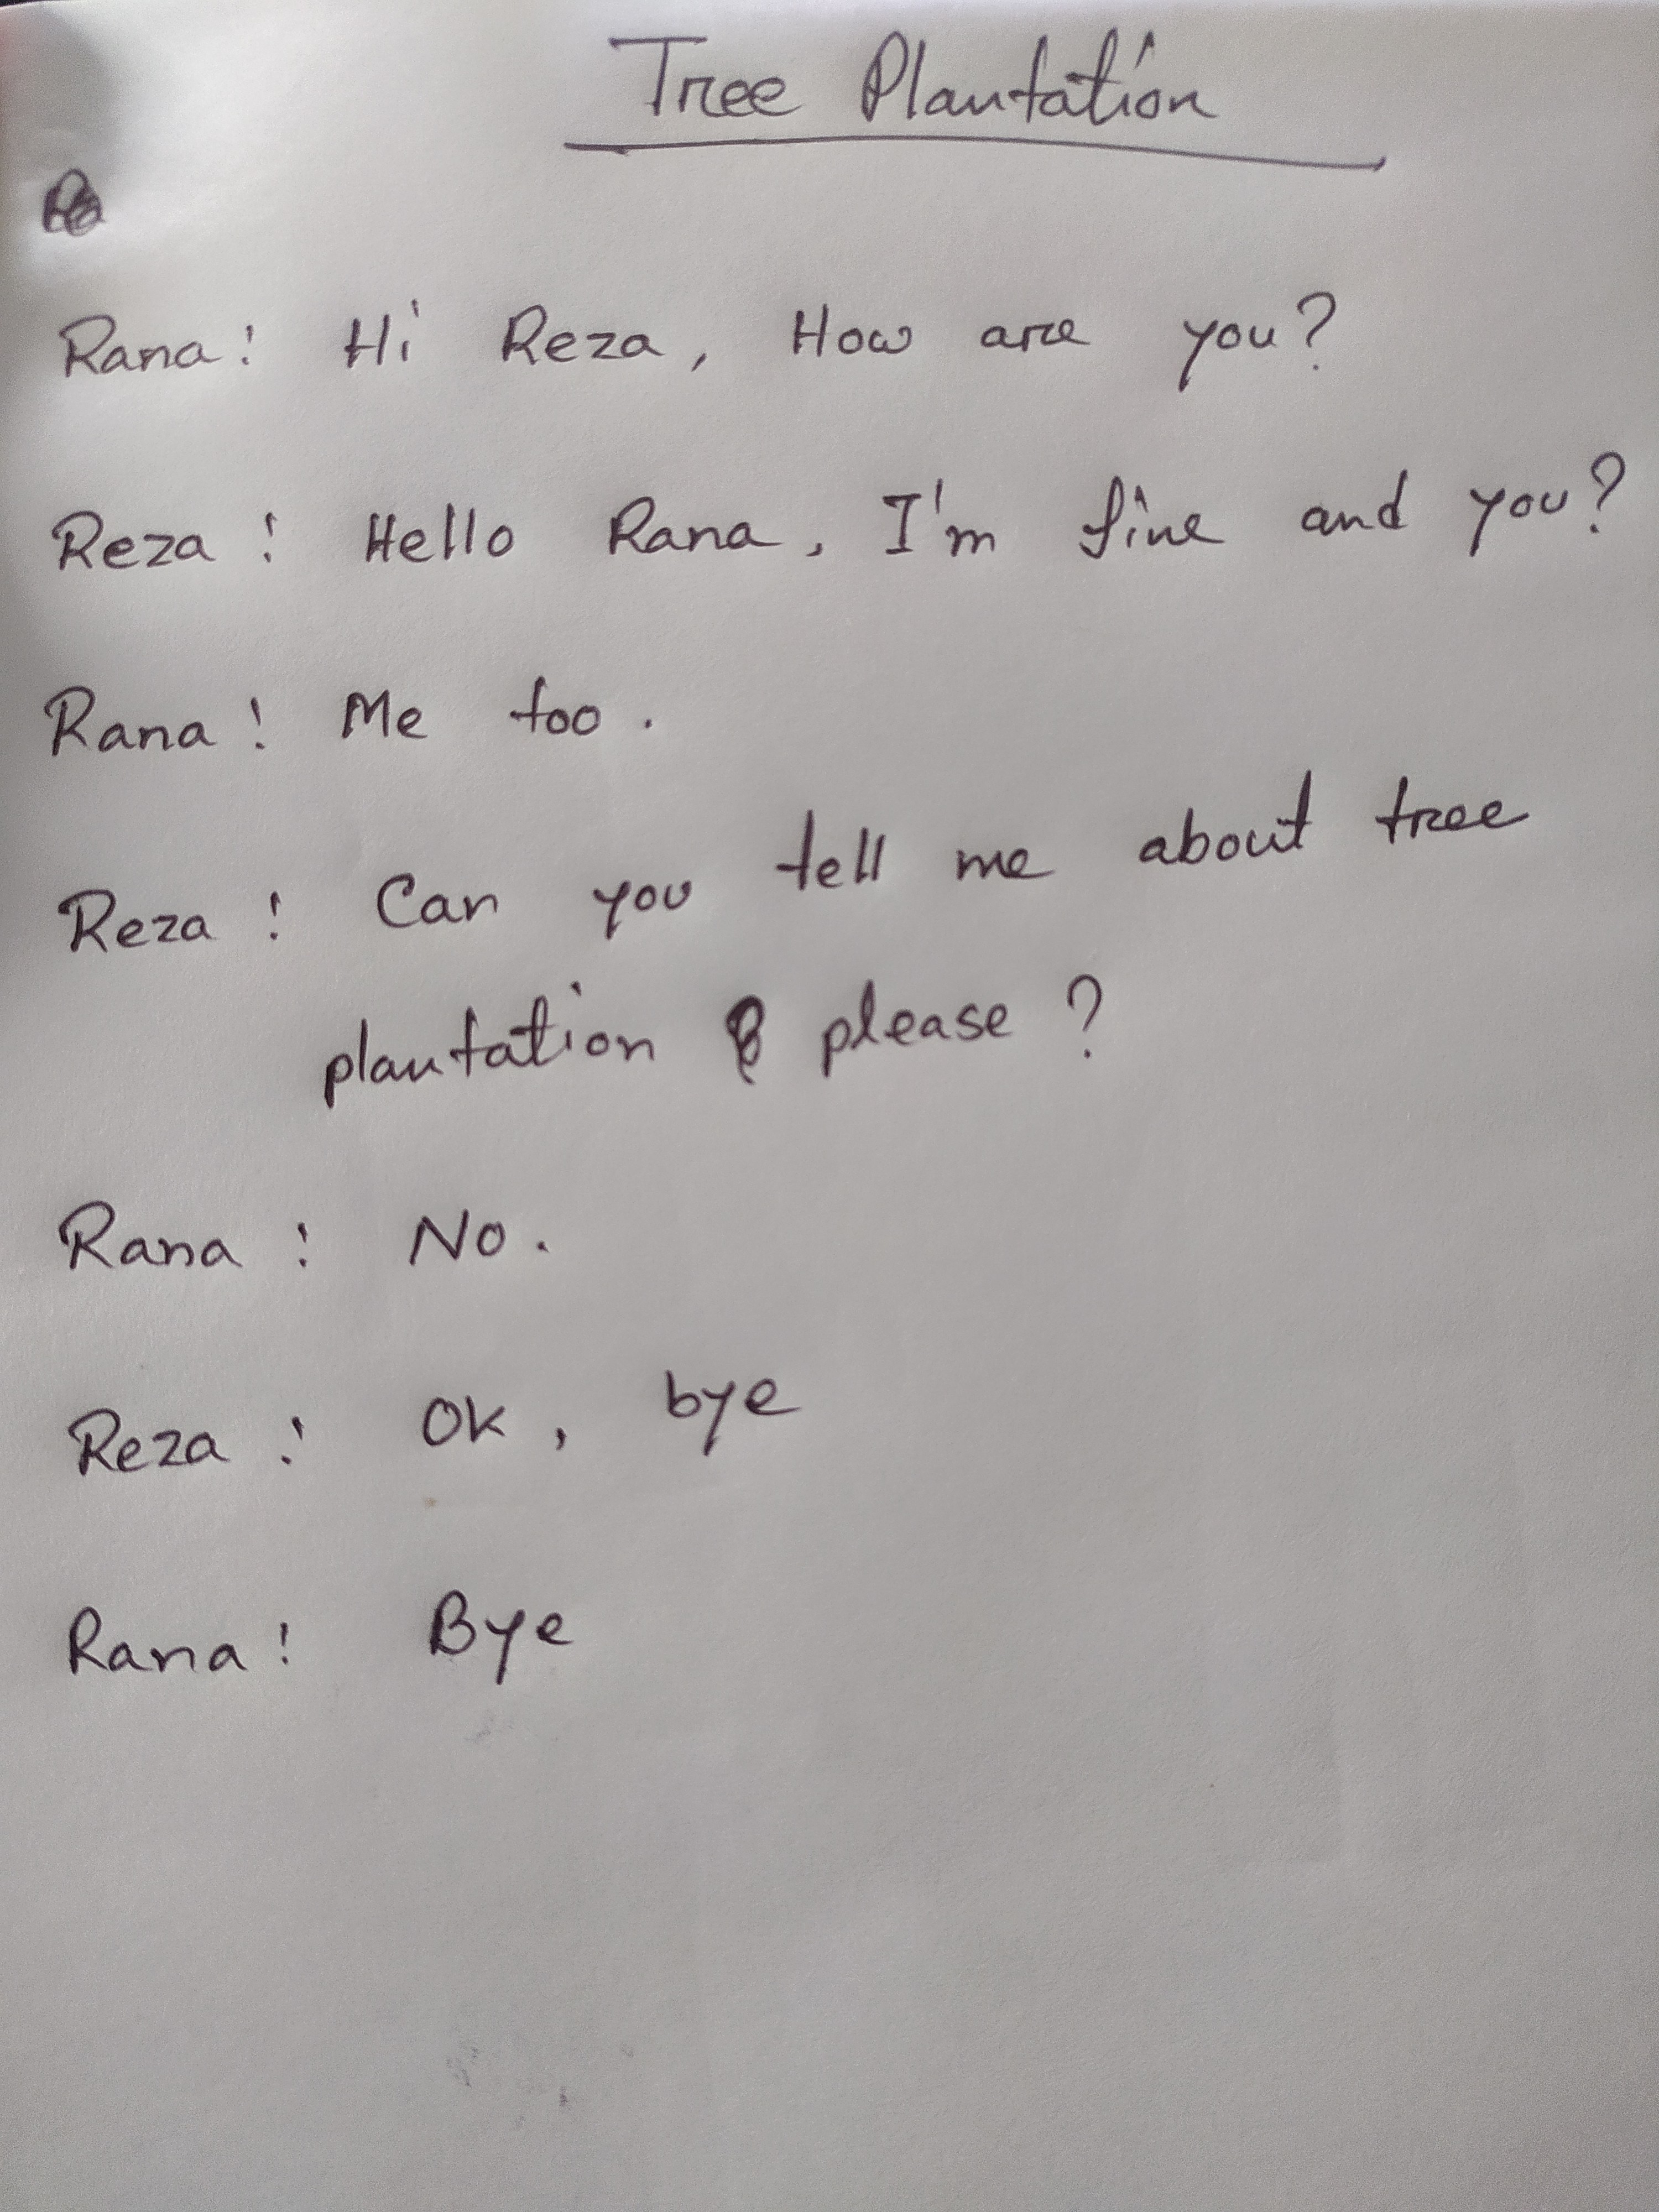 Tree Plantation
Rana: Hi Reza, How are you?
Reza: Hello Rana, I'm fine and you?
Rana: Me too.
Reza: Can you tell me about tree
plantation please?
Rana: No.
Reza: Ok, bye
Rana: Bye